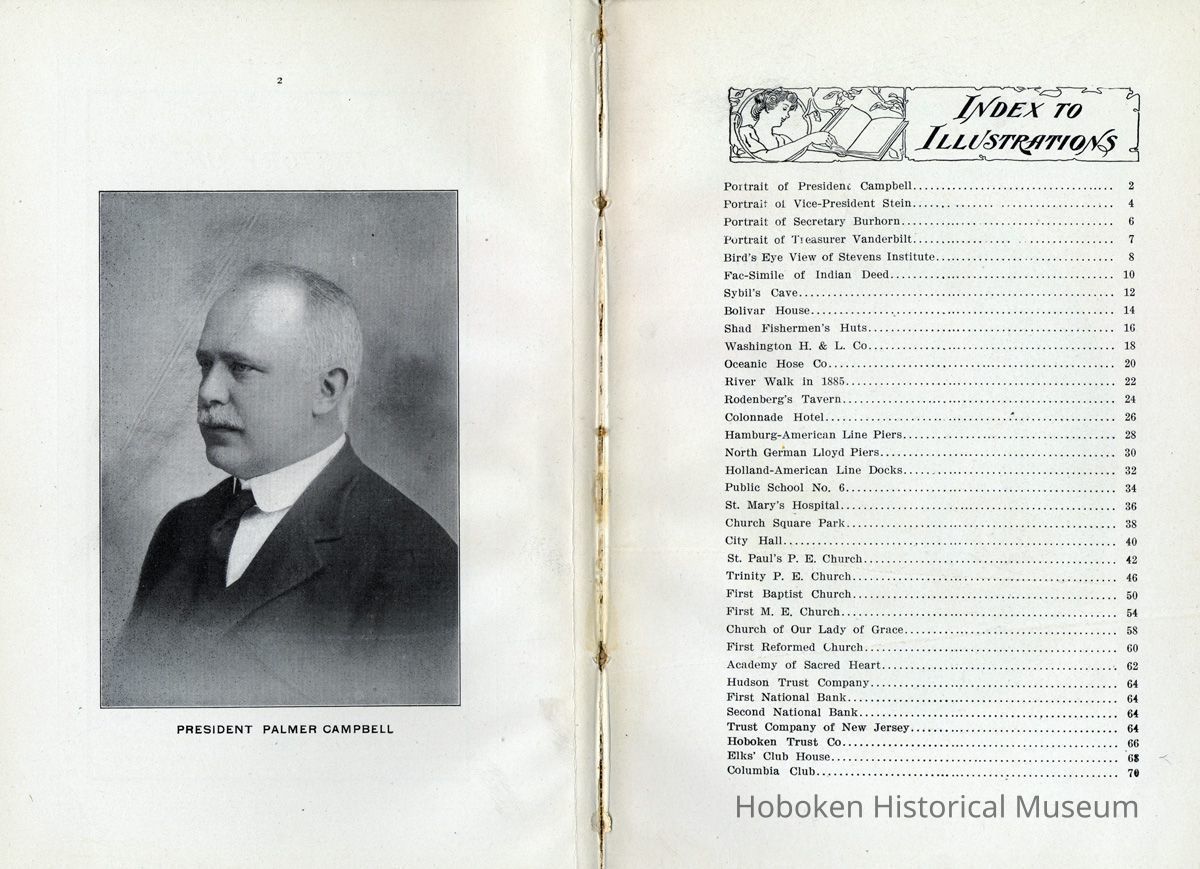 2
PRESIDENT PALMER CAMPBELL
INDEX TO
ILLUSTRATIONS
Portrait of President Campbell 2
Portrait of Vice-President Stein 4
Portrait of Secretary Burhorn 6
Portrait of Treasurer Vanderbilt 7
Bird's Eye View of Stevens Institute 8
Fac-Simile of Indian Deed 10
Sybil's Cave 12
Bolivar House 14
Shad Fishermen's Huts 16
Washington H. & L. Co. 18
Oceanic Hose Co. 20
River Walk in 1885 22
Rodenberg's Tavern 24
Colonnade Hotel 26
Hamburg-American Line Piers 28
North German Lloyd Piers 30
Holland-American Line Docks 32
Public School No. 6 34
St. Mary's Hospital 36
Church Square Park 38
City Hall 40
St. Paul's P. E. Church 42
Trinity P. E. Church 46
First Baptist Church 50
First M. E. Church 54
Church of Our Lady of Grace 58
First Reformed Church 60
Academy of Sacred Heart 62
Hudson Trust Company 64
First National Bank 64
Second National Bank 64
Trust Company of New Jersey 64
Hoboken Trust Co. 66
Elks' Club House 68
Columbia Club 70
Hoboken Historical Museum